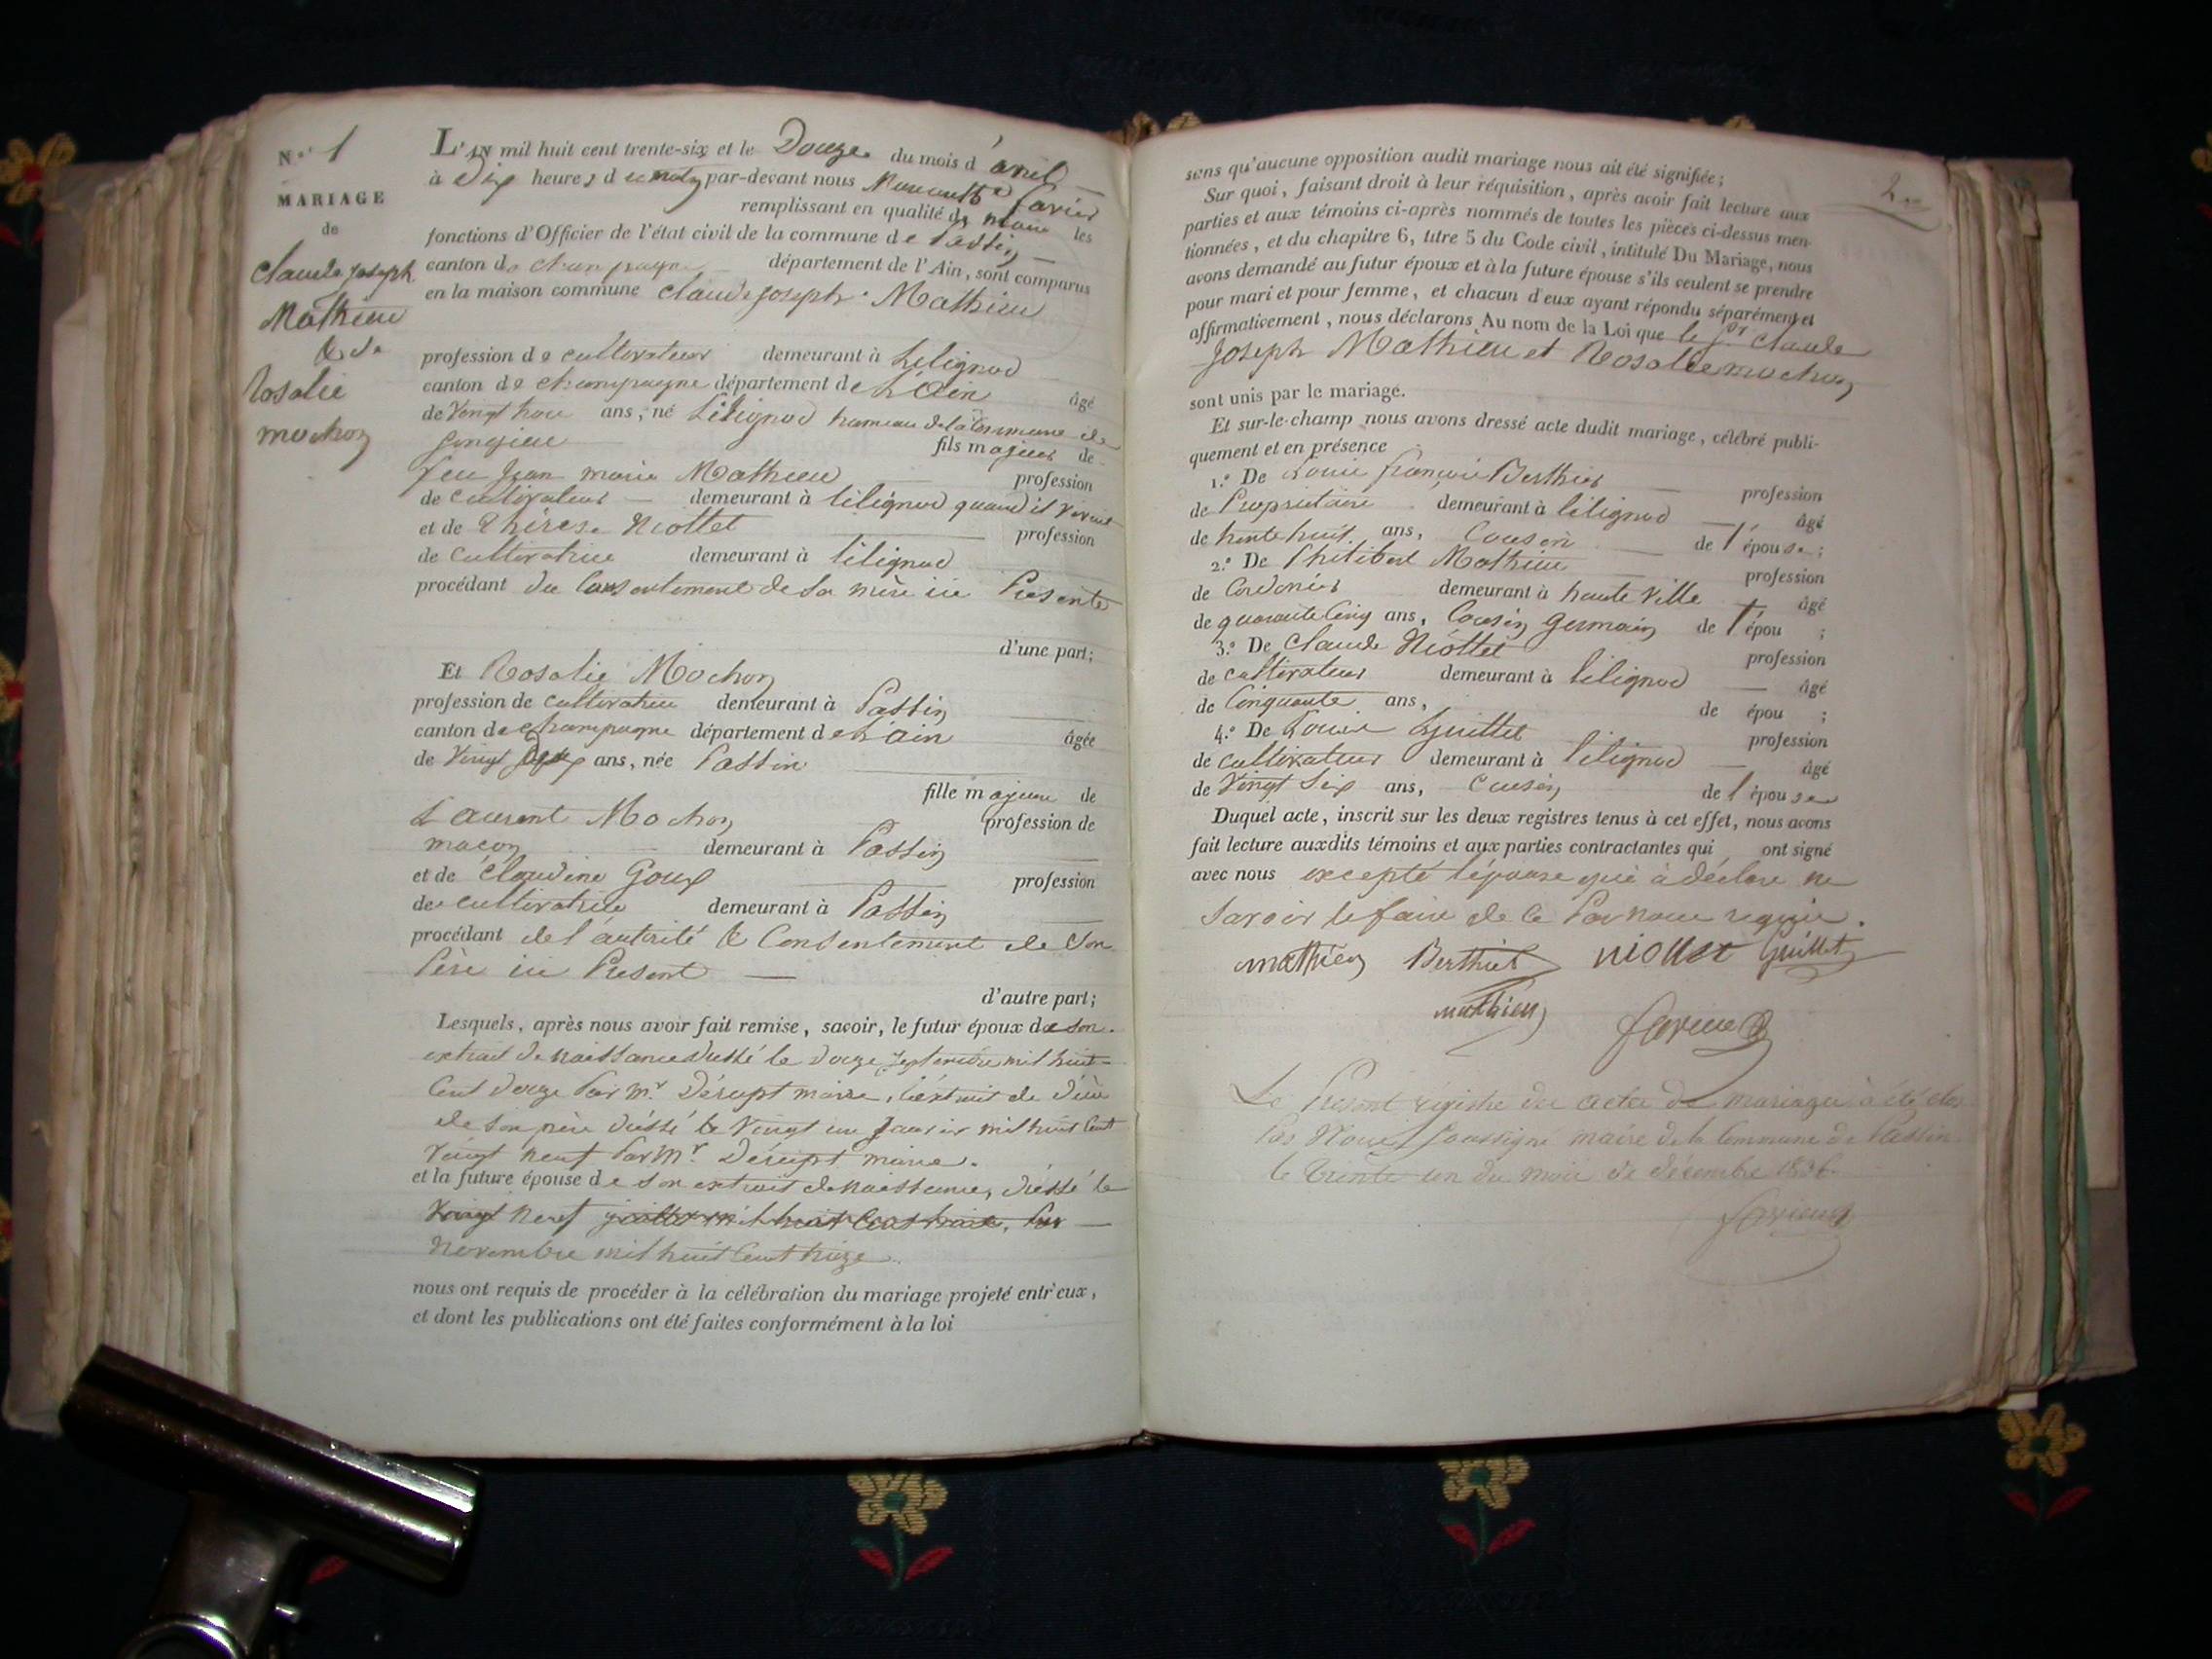 N.º 1
MARIAGE
de
Claude Joseph
Mathieu
& de
Rosalie
mochon
L'AN mil huit cent trente-six et le Douze du mois d'avril
à Dix heures du matin par-devant nous favier
remplissant en qualité de maire les
fonctions d'Officier de l'état civil de la commune de Passin
canton de champagne département de l'Ain, sont comparus
en la maison commune Claude Joseph Mathieu
profession de cultivateur demeurant à Lilignod
canton de champagne département de L'Ain âgé
de Vingt trois ans, né Lilignod hameau de la Commune de
Songieu fils majeur de
feu Jean marie Mathieu profession
de cultivateur demeurant à lilignod quand il vivait
et de Thérese Niollet profession
de cultivatrice demeurant à lilignod
procédant du Consentement de sa mère ici Presente
d'une part;
Et Rosalie Mochon
profession de cultivatrice demeurant à Passin
canton de champagne département de L'ain âgée
de Vingt ans, née Passin
fille majeure de
Laurent Mochon profession de
maçon demeurant à Passin
et de Claudine Goux profession
de cultivatrice demeurant à Passin
procédant de l'autorité & Consentement de Son
Père ici Present
d'autre part;
Lesquels, après nous avoir fait remise, savoir, le futur époux de son
extrait de naissance dressé le douze Septembre mil huit
Cent douze Par mr. Dérupt maire, l'extrait de décè
de son père dréssé le Vingt un Janvier mil huit Cent
Vingt neuf Par Mr. Dérupt maire.
et la future épouse de son extrait de naissance, dréssé le
Vingt neuf juillet mil huit Cent treize, Par
Novembre mil huit Cent treize
nous ont requis de procéder à la célébration du mariage projeté entr'eux,
et dont les publications ont été faites conformément à la loi
2
sans qu'aucune opposition audit mariage nous ait été signifiée;
Sur quoi, faisant droit à leur réquisition, après avoir fait lecture aux
parties et aux témoins ci-après nommés de toutes les pièces ci-dessus men-
tionnées, et du chapitre 6, titre 5 du Code civil, intitulé Du Mariage, nous
avons demandé au futur époux et à la future épouse s'ils veulent se prendre
pour mari et pour femme, et chacun d'eux ayant répondu séparément et
affirmativement, nous déclarons Au nom de la Loi que le Sr Claude
Joseph Mathieu et Rosalie mochon
sont unis par le mariage.
Et sur-le-champ nous avons dressé acte dudit mariage, célébré publi-
quement et en présence
1.º De Louis françois Berthier profession
de Propriétaire demeurant à lilignod âgé
de trente huit ans, Cousin de l'épouse;
2.º De Philibert Mathieu profession
de Cordonier demeurant à haute Ville âgé
de quarante Cinq ans, Cousin germain de l'épou ;
3.º De Claude Niollet profession
de cultivateur demeurant à lilignod âgé
de Cinquante ans, de épou ;
4.º De Louis Guillet profession
de cultivateur demeurant à lilignod âgé
de Vingt Six ans, Cousin de l'épouse
Duquel acte, inscrit sur les deux registres tenus à cet effet, nous avons
fait lecture auxdits témoins et aux parties contractantes qui ont signé
avec nous excepté l'épouse qui à déclare ne
Savoir le faire de ce Par nous requise.
mathieu Berthier niollet Guillet
mathieu favier
Le Present régistre des actes de mariages à été clos
Par Nous Soussigné maire de la Commune de Passin
le trente un du mois de décembre 1836
favier